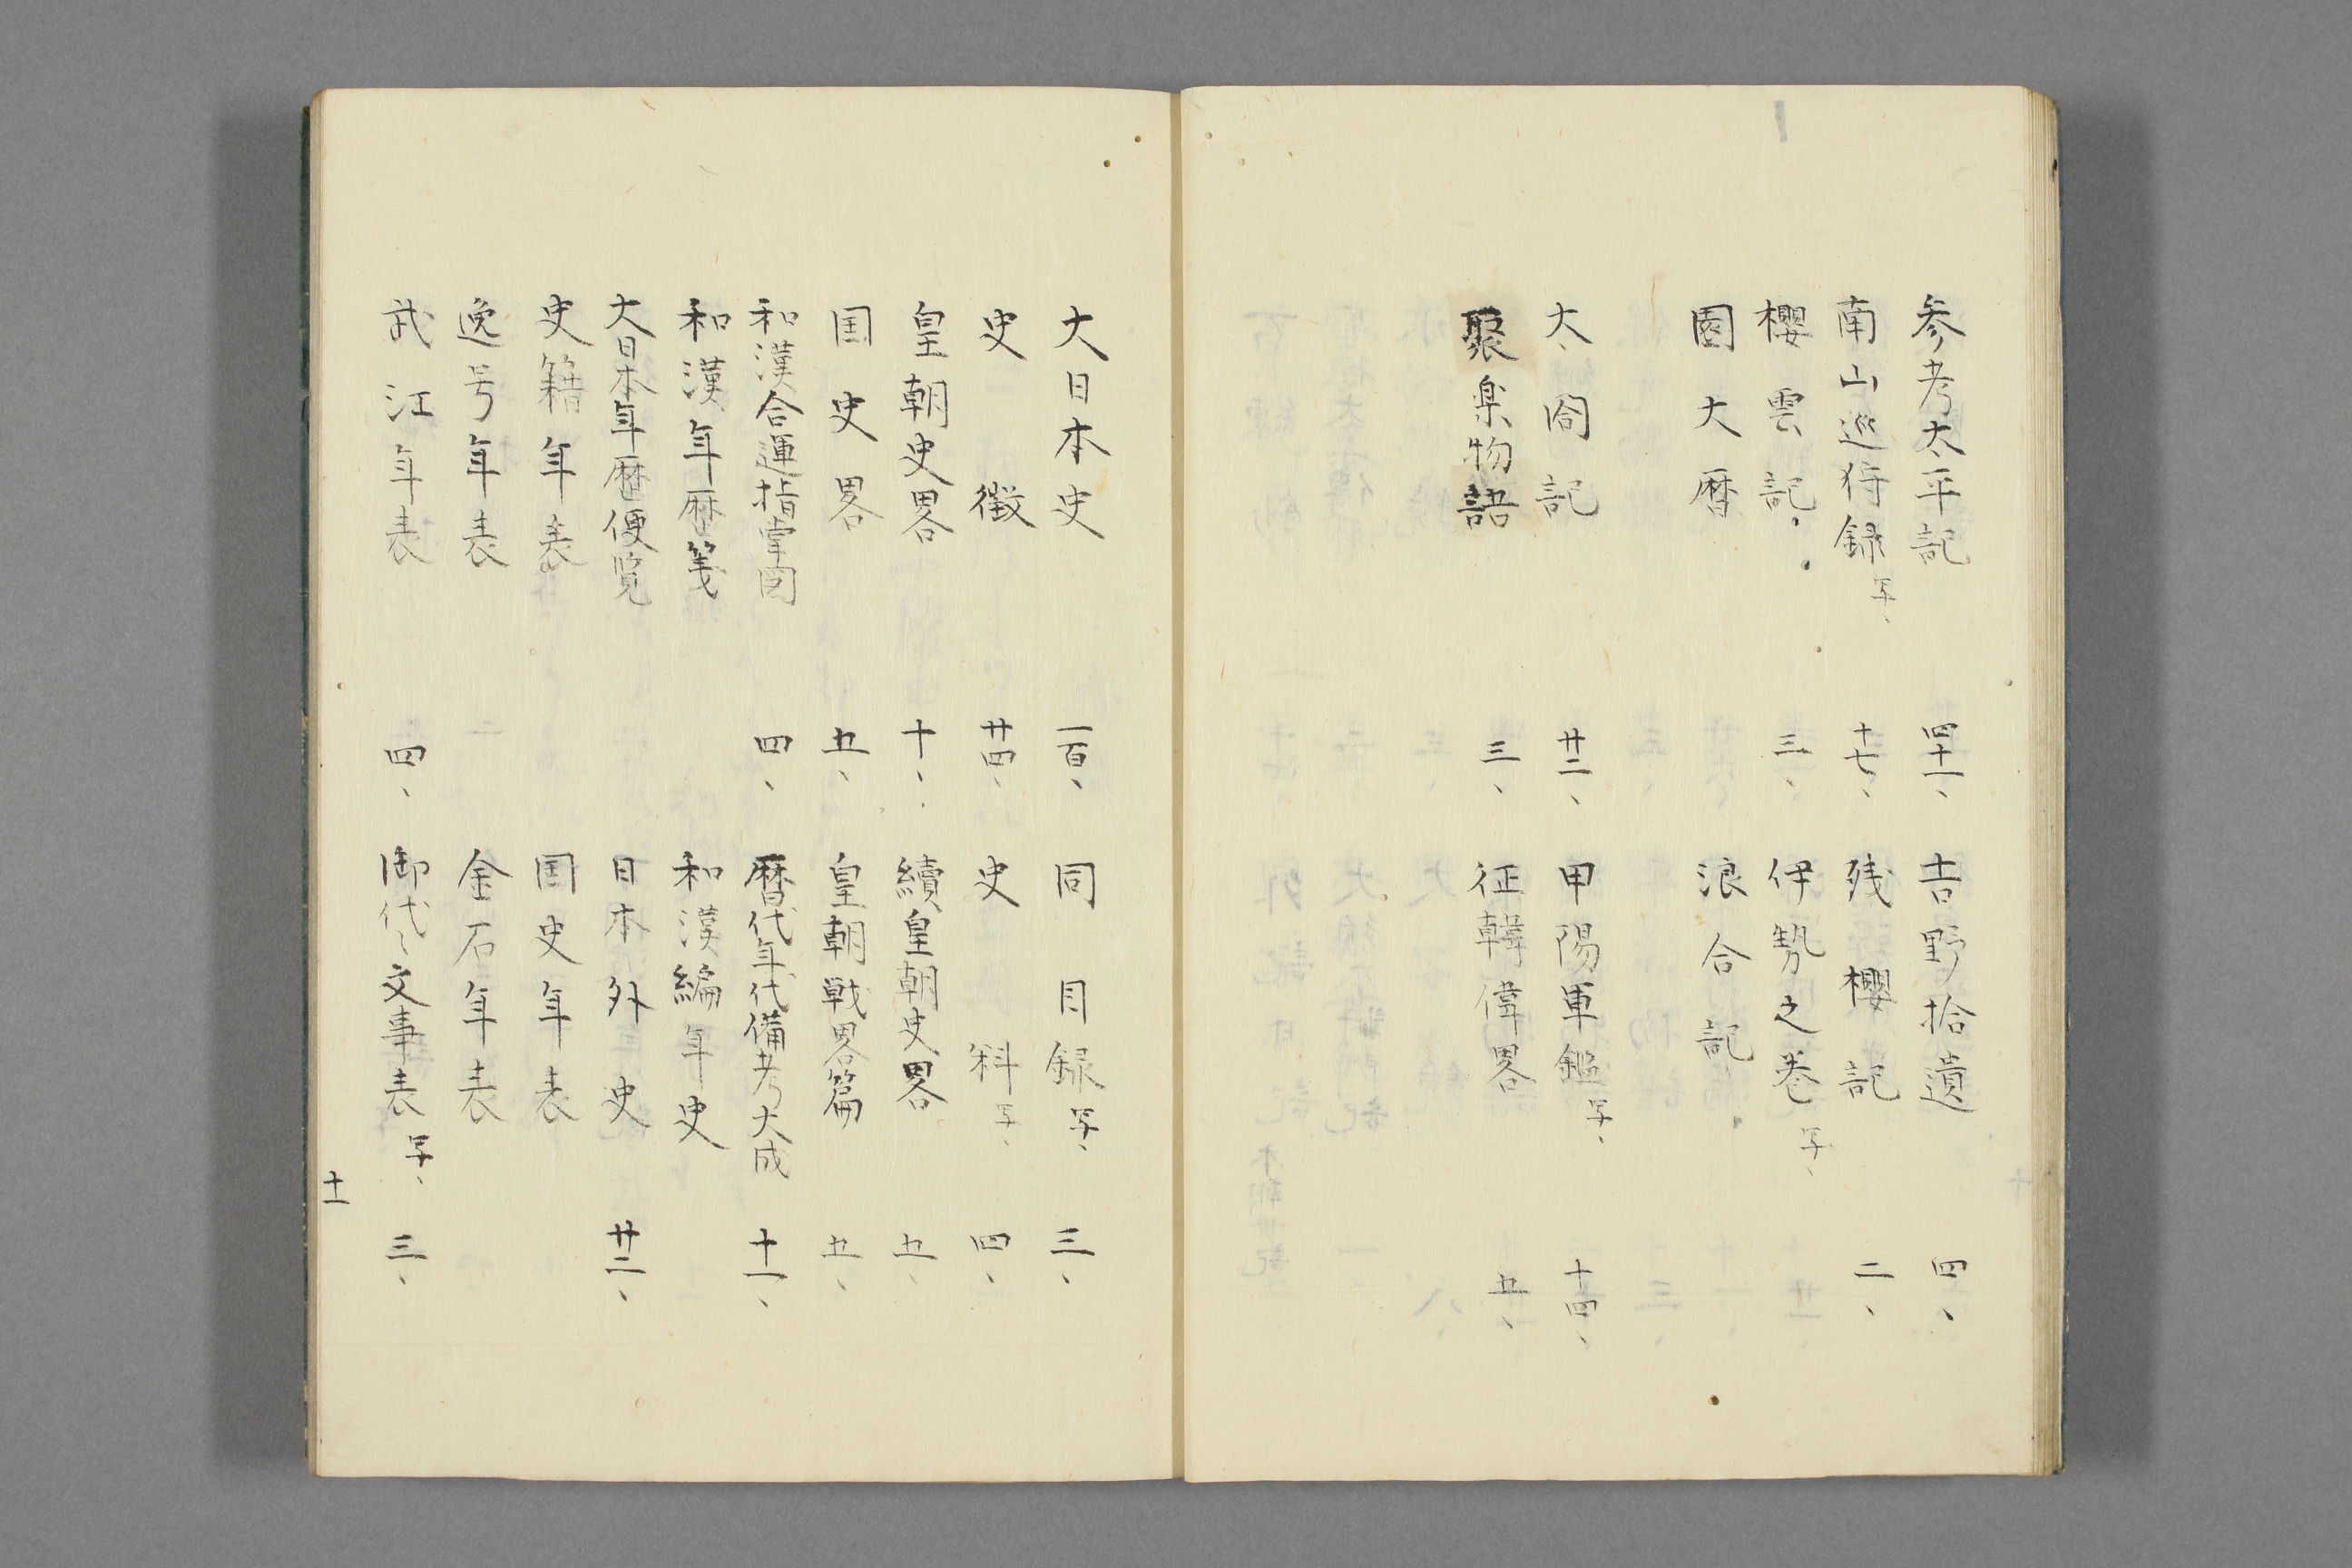 参考太平記 四十一、 吉野拾遺 四、
南山巡狩録 写、 十七、 残櫻記 二、
櫻雲記 三、 伊勢之巻 写、
園大暦 浪合記
太閤記 廿二、 甲陽軍鑑 写、 十四、
聚楽物語 三、 征韓偉畧 五、
大日本史 一百、 同目録 写、 三、
史徴 廿四、 史料 写、 四、
皇朝史畧 十、 續皇朝史畧 五、
国史畧 五、 皇朝戦畧篇 五、
和漢合運指掌図 四、 暦代年代備考大成 十一、
和漢年歴箋 和漢編年史
大日本年歴便覧 日本外史 廿二、
史籍年表 国史年表
逸号年表 金石年表
武江年表 四、 御代〻文事表 写、 三、
十一